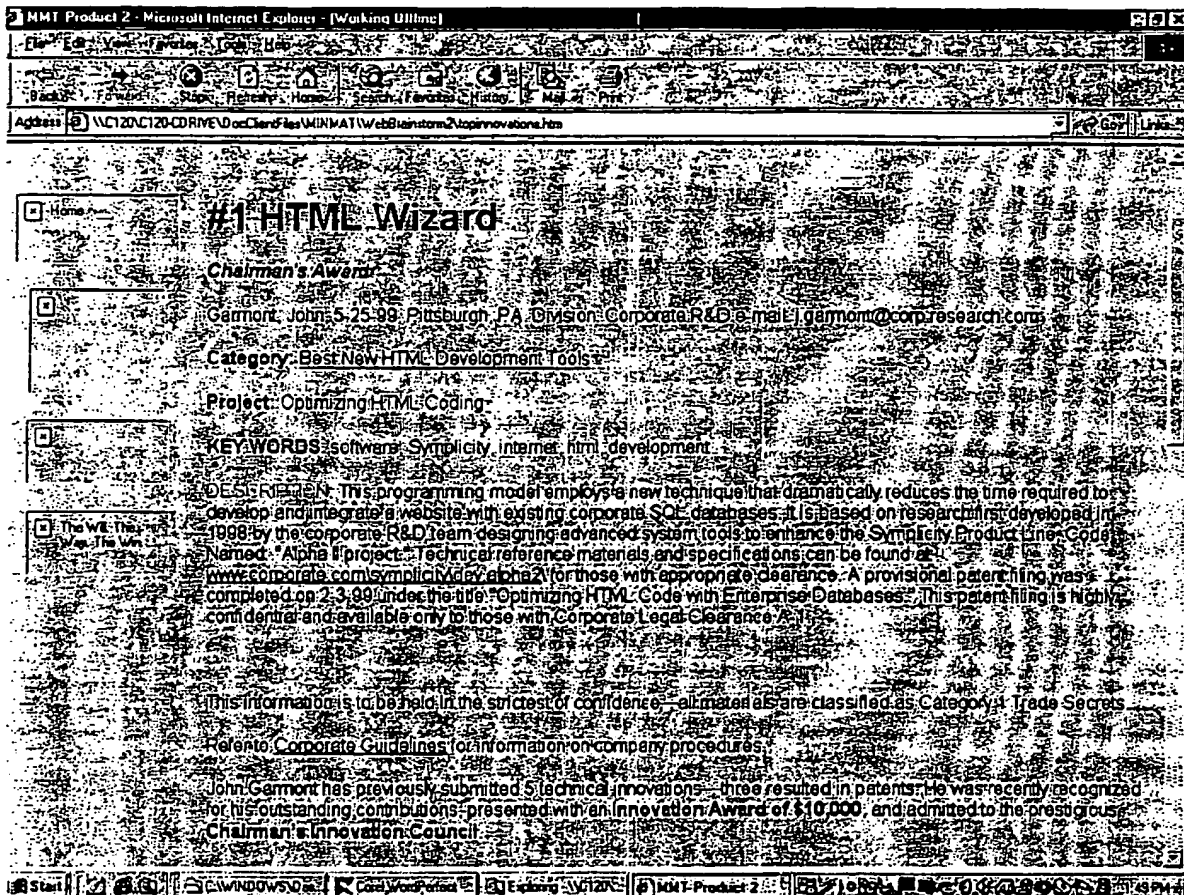 MMT Product 2 - Microsoft Internet Explorer - [Working Offline]
File Edit View Favorites Tools Help
Back Forward Stop Refresh Home Search Favorites History Mail Print
Address \\C120\C120-CDRIVE\DocClientFiles\MINMAT\WebBrainstorm2\topinnovations.htm Go Links
Home
#1 HTML Wizard
Chairman's Award
Garmont, John 5-25-99 Pittsburgh, PA Division: Corporate R&D e-mail: j.garmont@corp.research.com
Category: Best New HTML Development Tools
Project: Optimizing HTML Coding
KEY WORDS: software, Symplicity, internet, html, development
DESCRIPTION: This programming model employs a new technique that dramatically reduces the time required to
develop and integrate a website with existing corporate SQL databases. It is based on research first developed in
1998 by the corporate R&D team designing advanced system tools to enhance the Symplicity Product Line, Code
Named: "Alpha II project." Technical reference materials and specifications can be found at
www.corporate.com\symplicity\dev.alpha2\ for those with appropriate clearance. A provisional patent filing was
completed on 2-3-99 under the title "Optimizing HTML Code with Enterprise Databases." This patent filing is highly
confidential and available only to those with Corporate Legal Clearance A-1.
The Will, The
Way, The Win
This information is to be held in the strictest of confidence—all materials are classified as Category 1 Trade Secrets
Refer to Corporate Guidelines for information on company procedures.
John Garmont has previously submitted 5 technical innovations—three resulted in patents. He was recently recognized
for his outstanding contributions, presented with an Innovation Award of $10,000, and admitted to the prestigious
Chairman's Innovation Council.
Start C:\WINDOWS\Des... Corel WordPerfect Exploring - \\C120\... MMT-Product 2